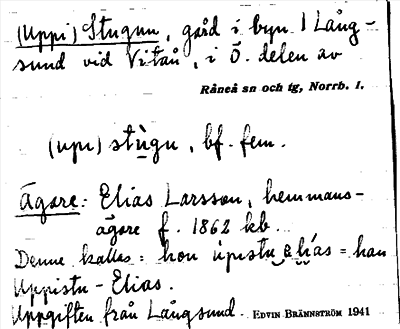 (Uppi) Stugun, gård i byn Lång-
sund vid Vitån, i Ö. delen av
Råneå sn och tg, Norrb. l.
(upi) stùgu, bf. fem.
Ägare: Elias Larsson, hemmans-
ägare f. 1862 kb.
Denne kallas: hon úpistu = han
Uppistu-Elias.
Uppgiften från Långsund. EDVIN BRÄNNSTRÖM 1941